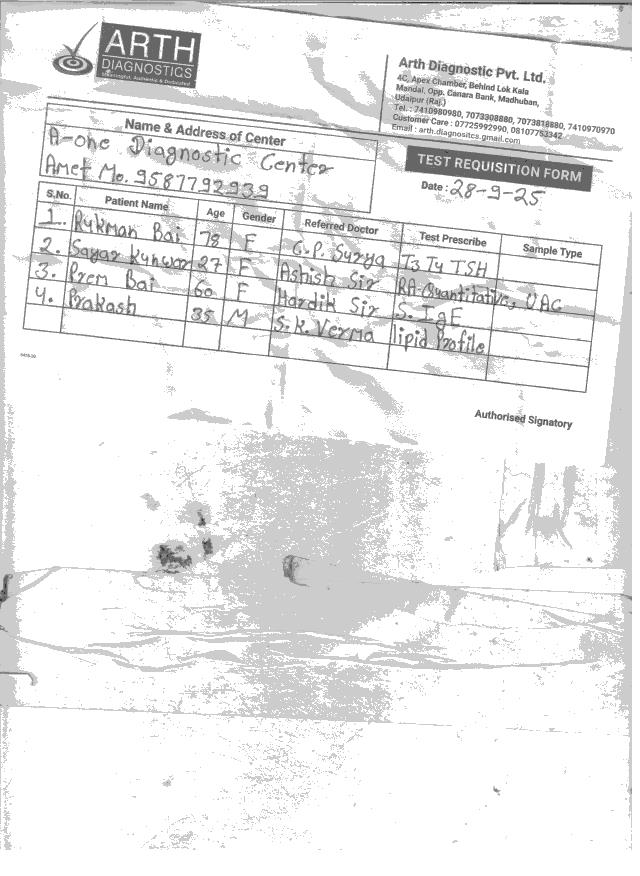 ARTH
DIAGNOSTICS
Meaningful, Authentic & Dedicated
Arth Diagnostic Pvt. Ltd.
4C, Apex Chamber, Behind Lok Kala
Mandal, Opp. Canara Bank, Madhuban,
Udaipur (Raj.)
Tel. : 7410980980, 7073308880, 7073818880, 7410970970
Customer Care : 07725992990, 08107753342
Email : arth.diagnosites.gmail.com
Name & Address of Center
A-one Diagnostic Center
Amet Mo. 9587792939
TEST REQUISITION FORM
Date : 28-9-25
S.No. Patient Name Age Gender Referred Doctor Test Prescribe Sample Type
1. Rukman Bai 78 F C.P. Surya T3 T4 TSH
2. Sagar Kunwar 27 F Ashish Sir RA-Quantitative, UAC
3. Prem Bai 60 F Hardik Sir S. IgE
4. Prakash 35 M S.K. Verma lipid Profile
Authorised Signatory